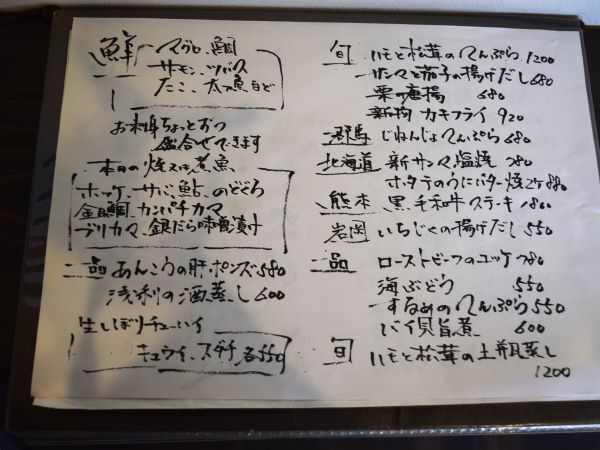 鮮 マグロ、鯛
サモン、ツバス
たこ、太刀魚など
お刺身ちょっとずつ
盛合せできます
本日の焼又は煮魚
ホッケ、サバ、鮎、のどぐろ
金目鯛、カンパチカマ
ブリカマ、銀だら味噌漬け
一品 あんこうの肝ポンズ 580
浅利の酒蒸し 600
生しぼりチューハイ
キュウイ、スダチ 各550
旬 ハモと松茸のてんぷら 1200
サンマと茄子の揚げだし 680
栗の唐揚 680
新物 カキフライ 920
群馬 じねんじょてんぷら 680
北海道 新サンマ塩焼 780
ホタテのうにバター焼 2ケ 880
熊本 黒毛和牛ステーキ 1860
いちじくの揚げだし 550
一品 ローストビーフのユッケ 780
海ぶどう 550
するめのてんぷら 550
バイ貝旨煮 600
旬 ハモと松茸の土瓶蒸し
1200